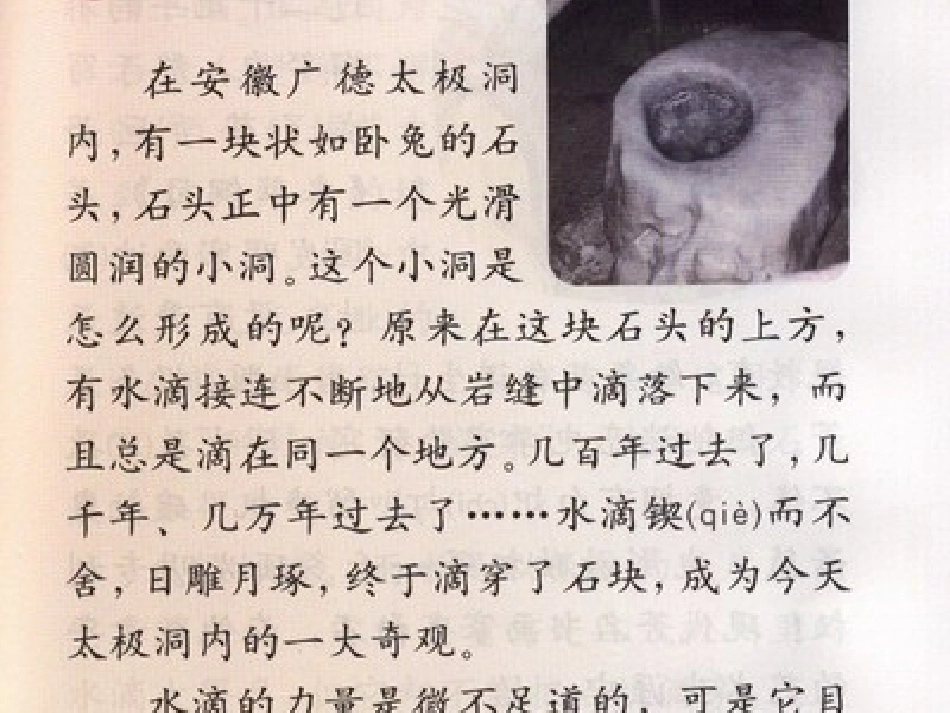 在安徽广德太极洞
内，有一块状如卧兔的石
头，石头正中有一个光滑
圆润的小洞。这个小洞是
怎么形成的呢？原来在这块石头的上方，
有水滴接连不断地从岩缝中滴落下来，而
且总是滴在同一个地方。几百年过去了，几
千年、几万年过去了……水滴锲(qiè)而不
舍，日雕月琢，终于滴穿了石块，成为今天
太极洞内的一大奇观。
水滴的力量是微不足道的，可是它目